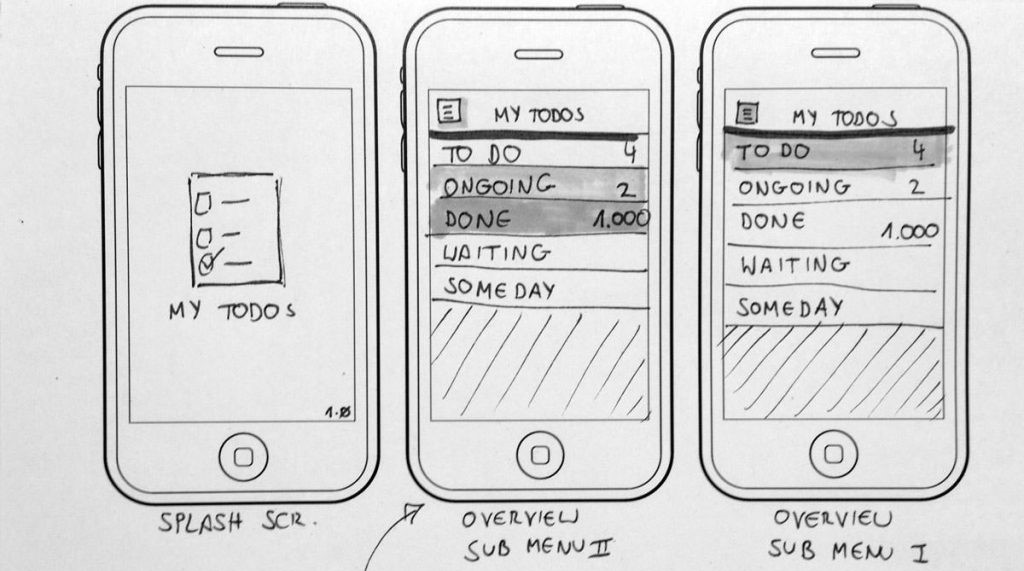 MY TODOS
1.0
SPLASH SCR.
MY TODOS
TO DO 4
ONGOING 2
DONE 1.000
WAITING
SOMEDAY
OVERVIEW
SUB MENU II
MY TODOS
TO DO 4
ONGOING 2
DONE 1.000
WAITING
SOMEDAY
OVERVIEW
SUB MENU I